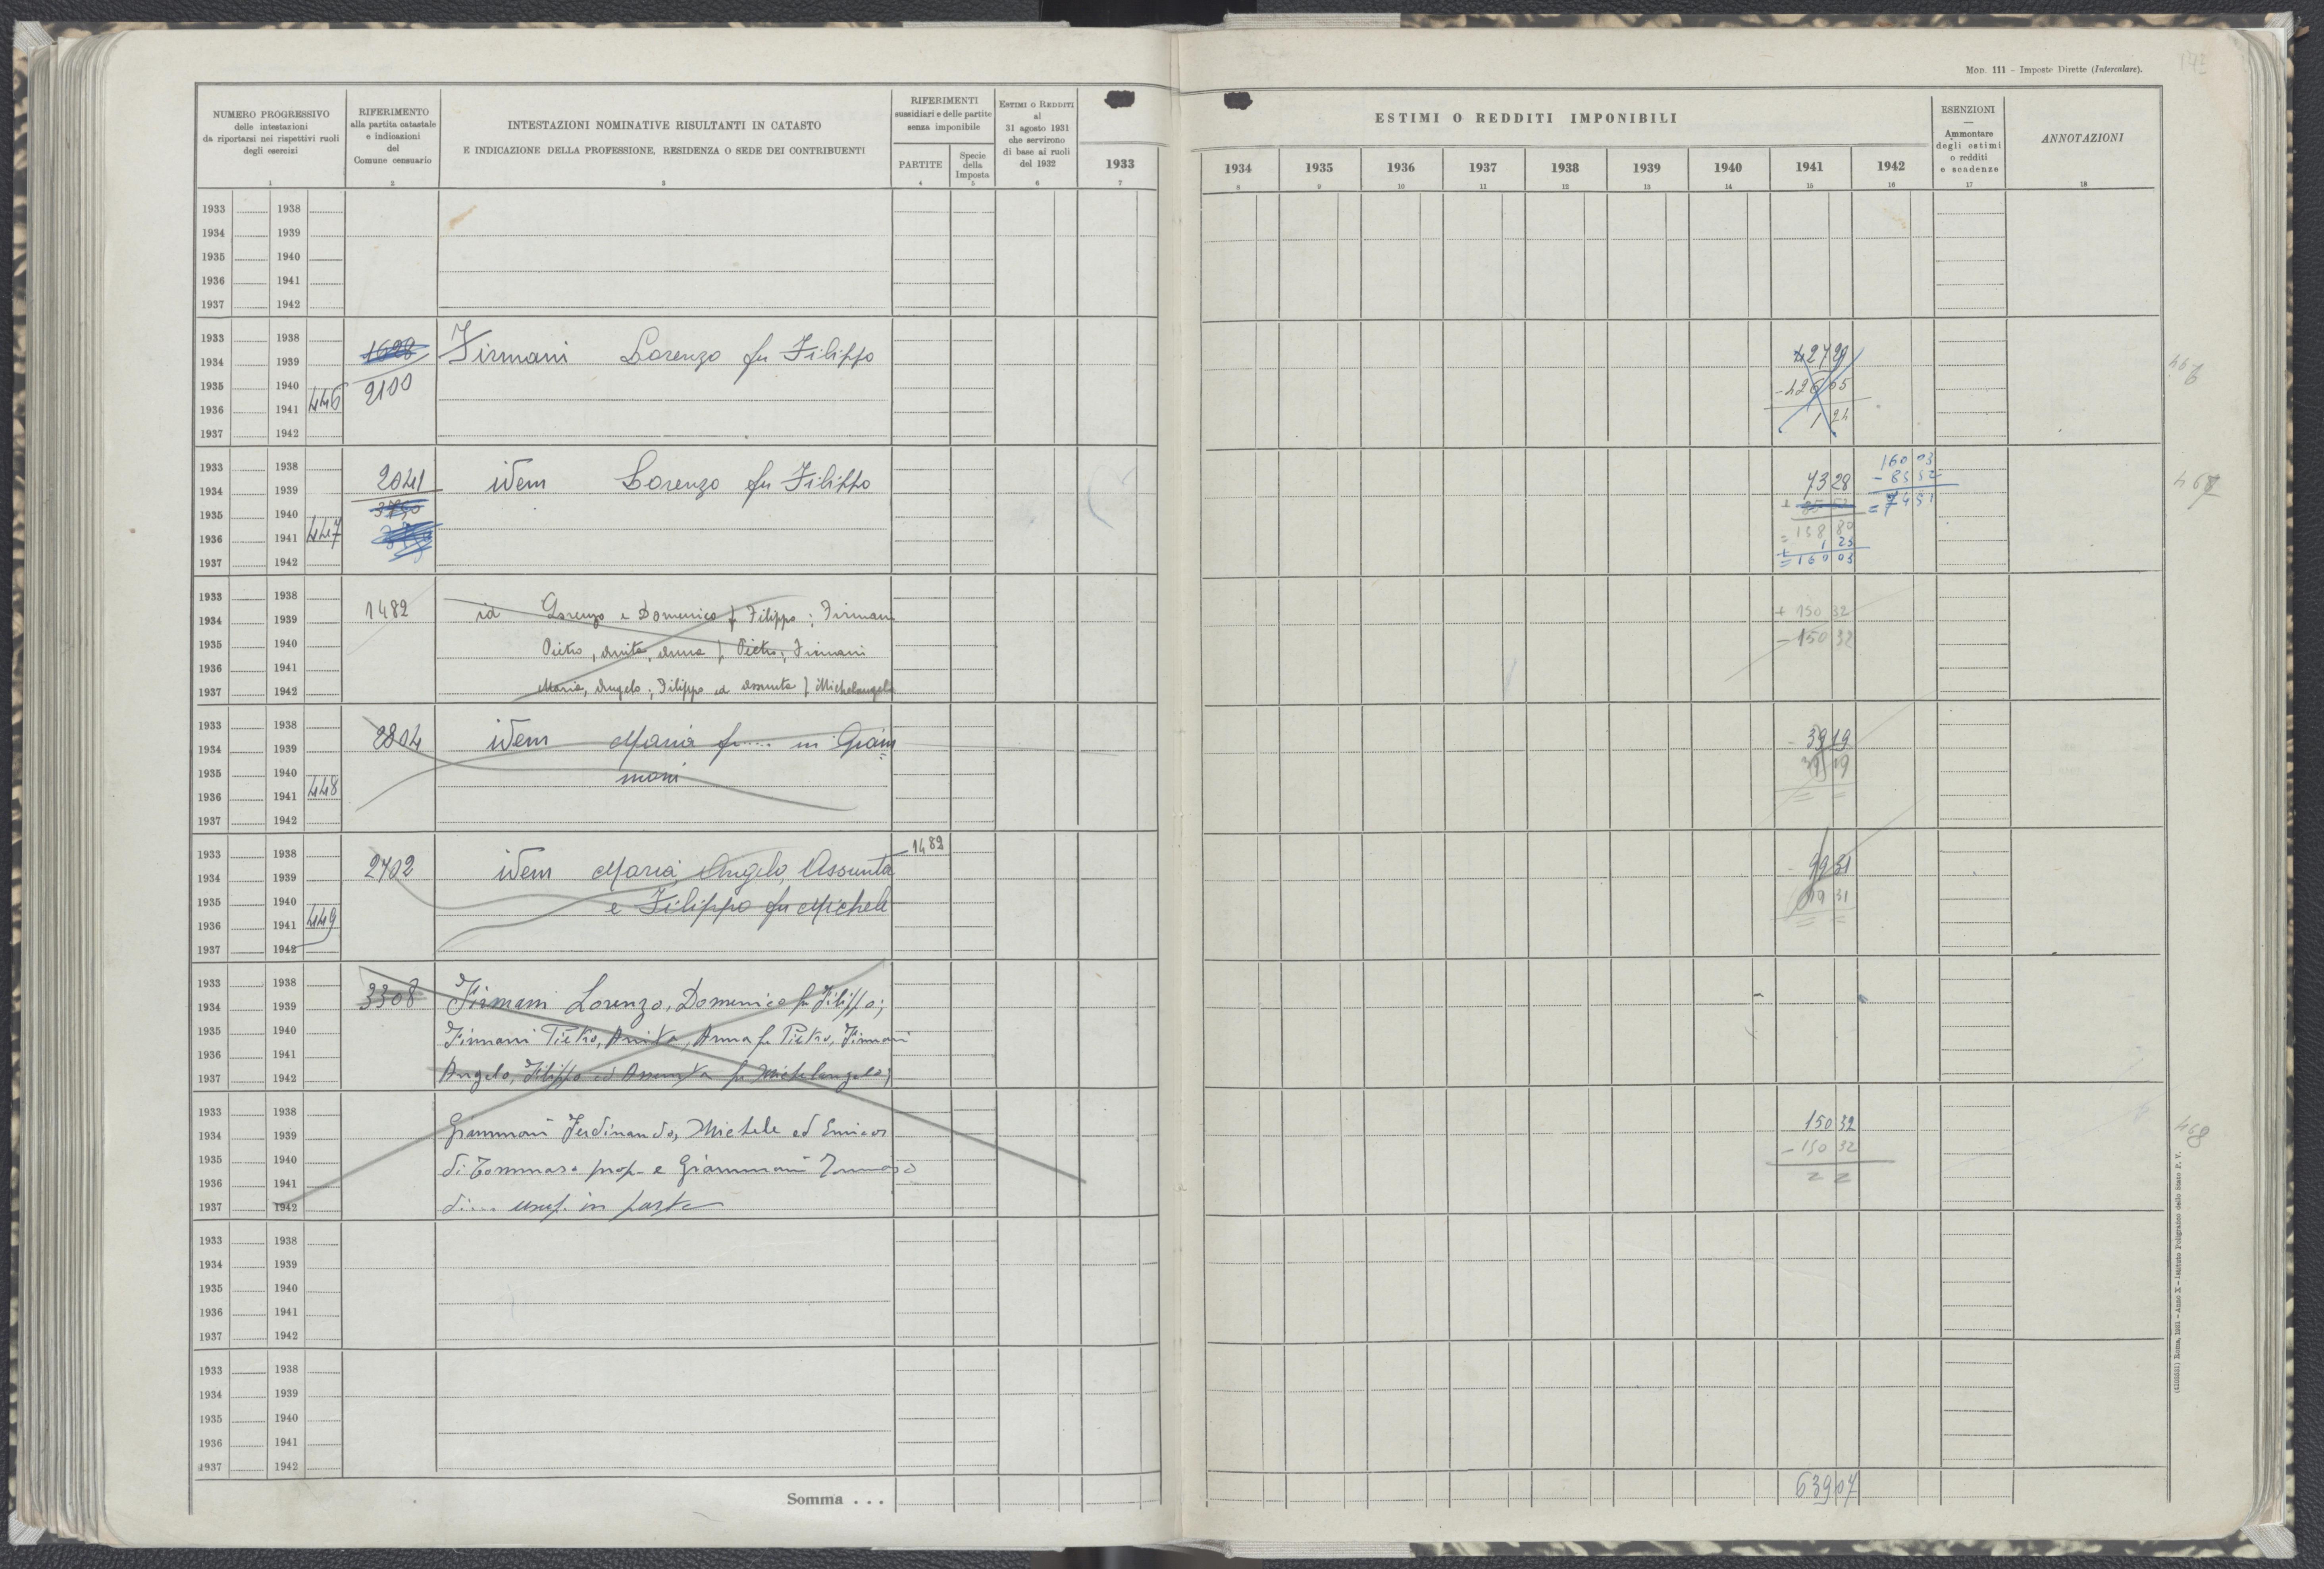 MOD. 111 – Imposte Dirette (Intercalare).
142
NUMERO PROGRESSIVO
delle intestazioni
da riportarsi nei rispettivi ruoli
degli esercizi
1
RIFERIMENTO
alla partita catastale
e indicazioni
del
Comune censuario
2
INTESTAZIONI NOMINATIVE RISULTANTI IN CATASTO
E INDICAZIONE DELLA PROFESSIONE, RESIDENZA O SEDE DEI CONTRIBUENTI
3
RIFERIMENTI
sussidiari e delle partite
senza imponibile
PARTITE
4
Specie
della
Imposta
5
ESTIMI O REDDITI
al
31 agosto 1931
che servirono
di base ai ruoli
del 1932
6
1933
7
ESTIMI O REDDITI IMPONIBILI
1934 1935 1936 1937 1938 1939 1940 1941 1942
8 9 10 11 12 13 14 15 16
ESENZIONI
—
Ammontare
degli estimi
o redditi
e scadenze
17
ANNOTAZIONI
18
1933 1938
1934 1939
1935 1940
1936 1941
1937 1942
1933 1938
1934 1939 1698 Firmani Lorenzo fu Filippo 427 29
1935 1940 2100 - 426 05
1936 1941 446 1 24
1937 1942
466
1933 1938 160 03
1934 1939 2041 idem Lorenzo fu Filippo 73 28 - 85 52
1935 1940 + 85 52 = 74 51
1936 1941 447 = 158 80
1 23
1937 1942 = 160 03
467
1933 1938
1934 1939 1482 id Lorenzo e Domenico f Filippo; Firmani + 150 32
1935 1940 Pietro, Anita, Anna f. Pietro; Firmani - 150 32
1936 1941
1937 1942 Maria, Angelo; Filippo ed Assunta f. Michelangelo
1933 1938
1934 1939 2804 idem Maria fu.... in Giam 39 19
1935 1940 moni 39 19
1936 1941 448
1937 1942
1933 1938 1482
1934 1939 2702 idem Maria, Angelo, Assunta 99 31
1935 1940 e Filippo fu Michele 99 31
1936 1941 449
1937 1942
1933 1938
1934 1939 3308 Firmani Lorenzo, Domenico fu Filippo;
1935 1940 Firmani Pietro, Anita, Anna fu Pietro, Firmani
1936 1941
1937 1942 Angelo, Filippo ed Assunta fu Michelangelo;
1933 1938
1934 1939 Giammoni Ferdinando, Michele ed Enrico 150 32
1935 1940 di Tommaso prop. e Giammoni - 150 32
1936 1941
1937 1942 di.... usuf. in parte
468
1933 1938
1934 1939
1935 1940
1936 1941
1937 1942
1933 1938
1934 1939
1935 1940
1936 1941
1937 1942
Somma . . . 639 07
(4103331) Roma, 1931 – Anno X – Istituto Poligrafico dello Stato P. V.